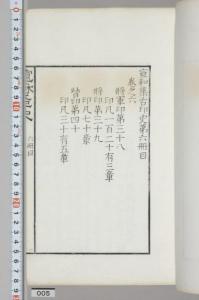 宣和集古印史第六冊目
卷之六
將軍印第三十八
印凡一百二十有三章
將印第三十九
印凡七十章
印第四十
印凡三十有五章
六冊目
005